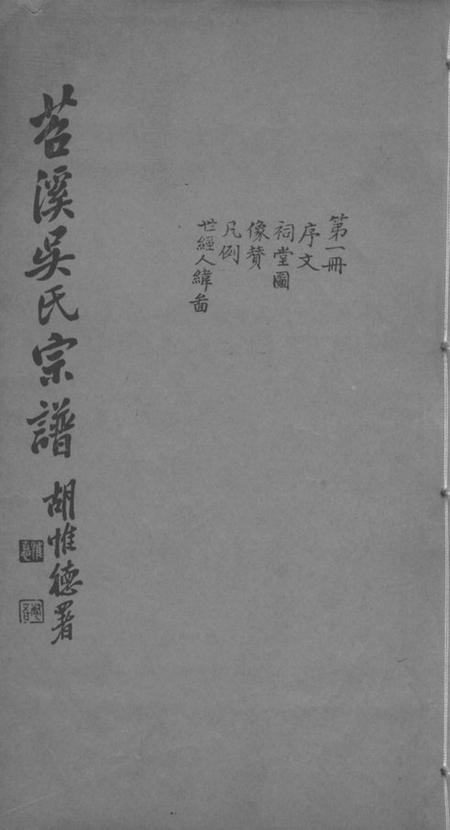 第一冊
序文
祠堂圖
像贊
凡例
世經人緯畣
苕溪吳氏宗譜
胡惟德署